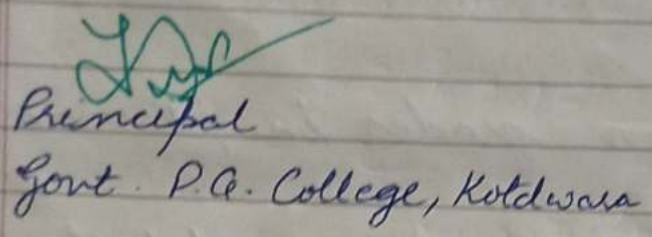 Principal
Govt. P.G. College, Kotdwara